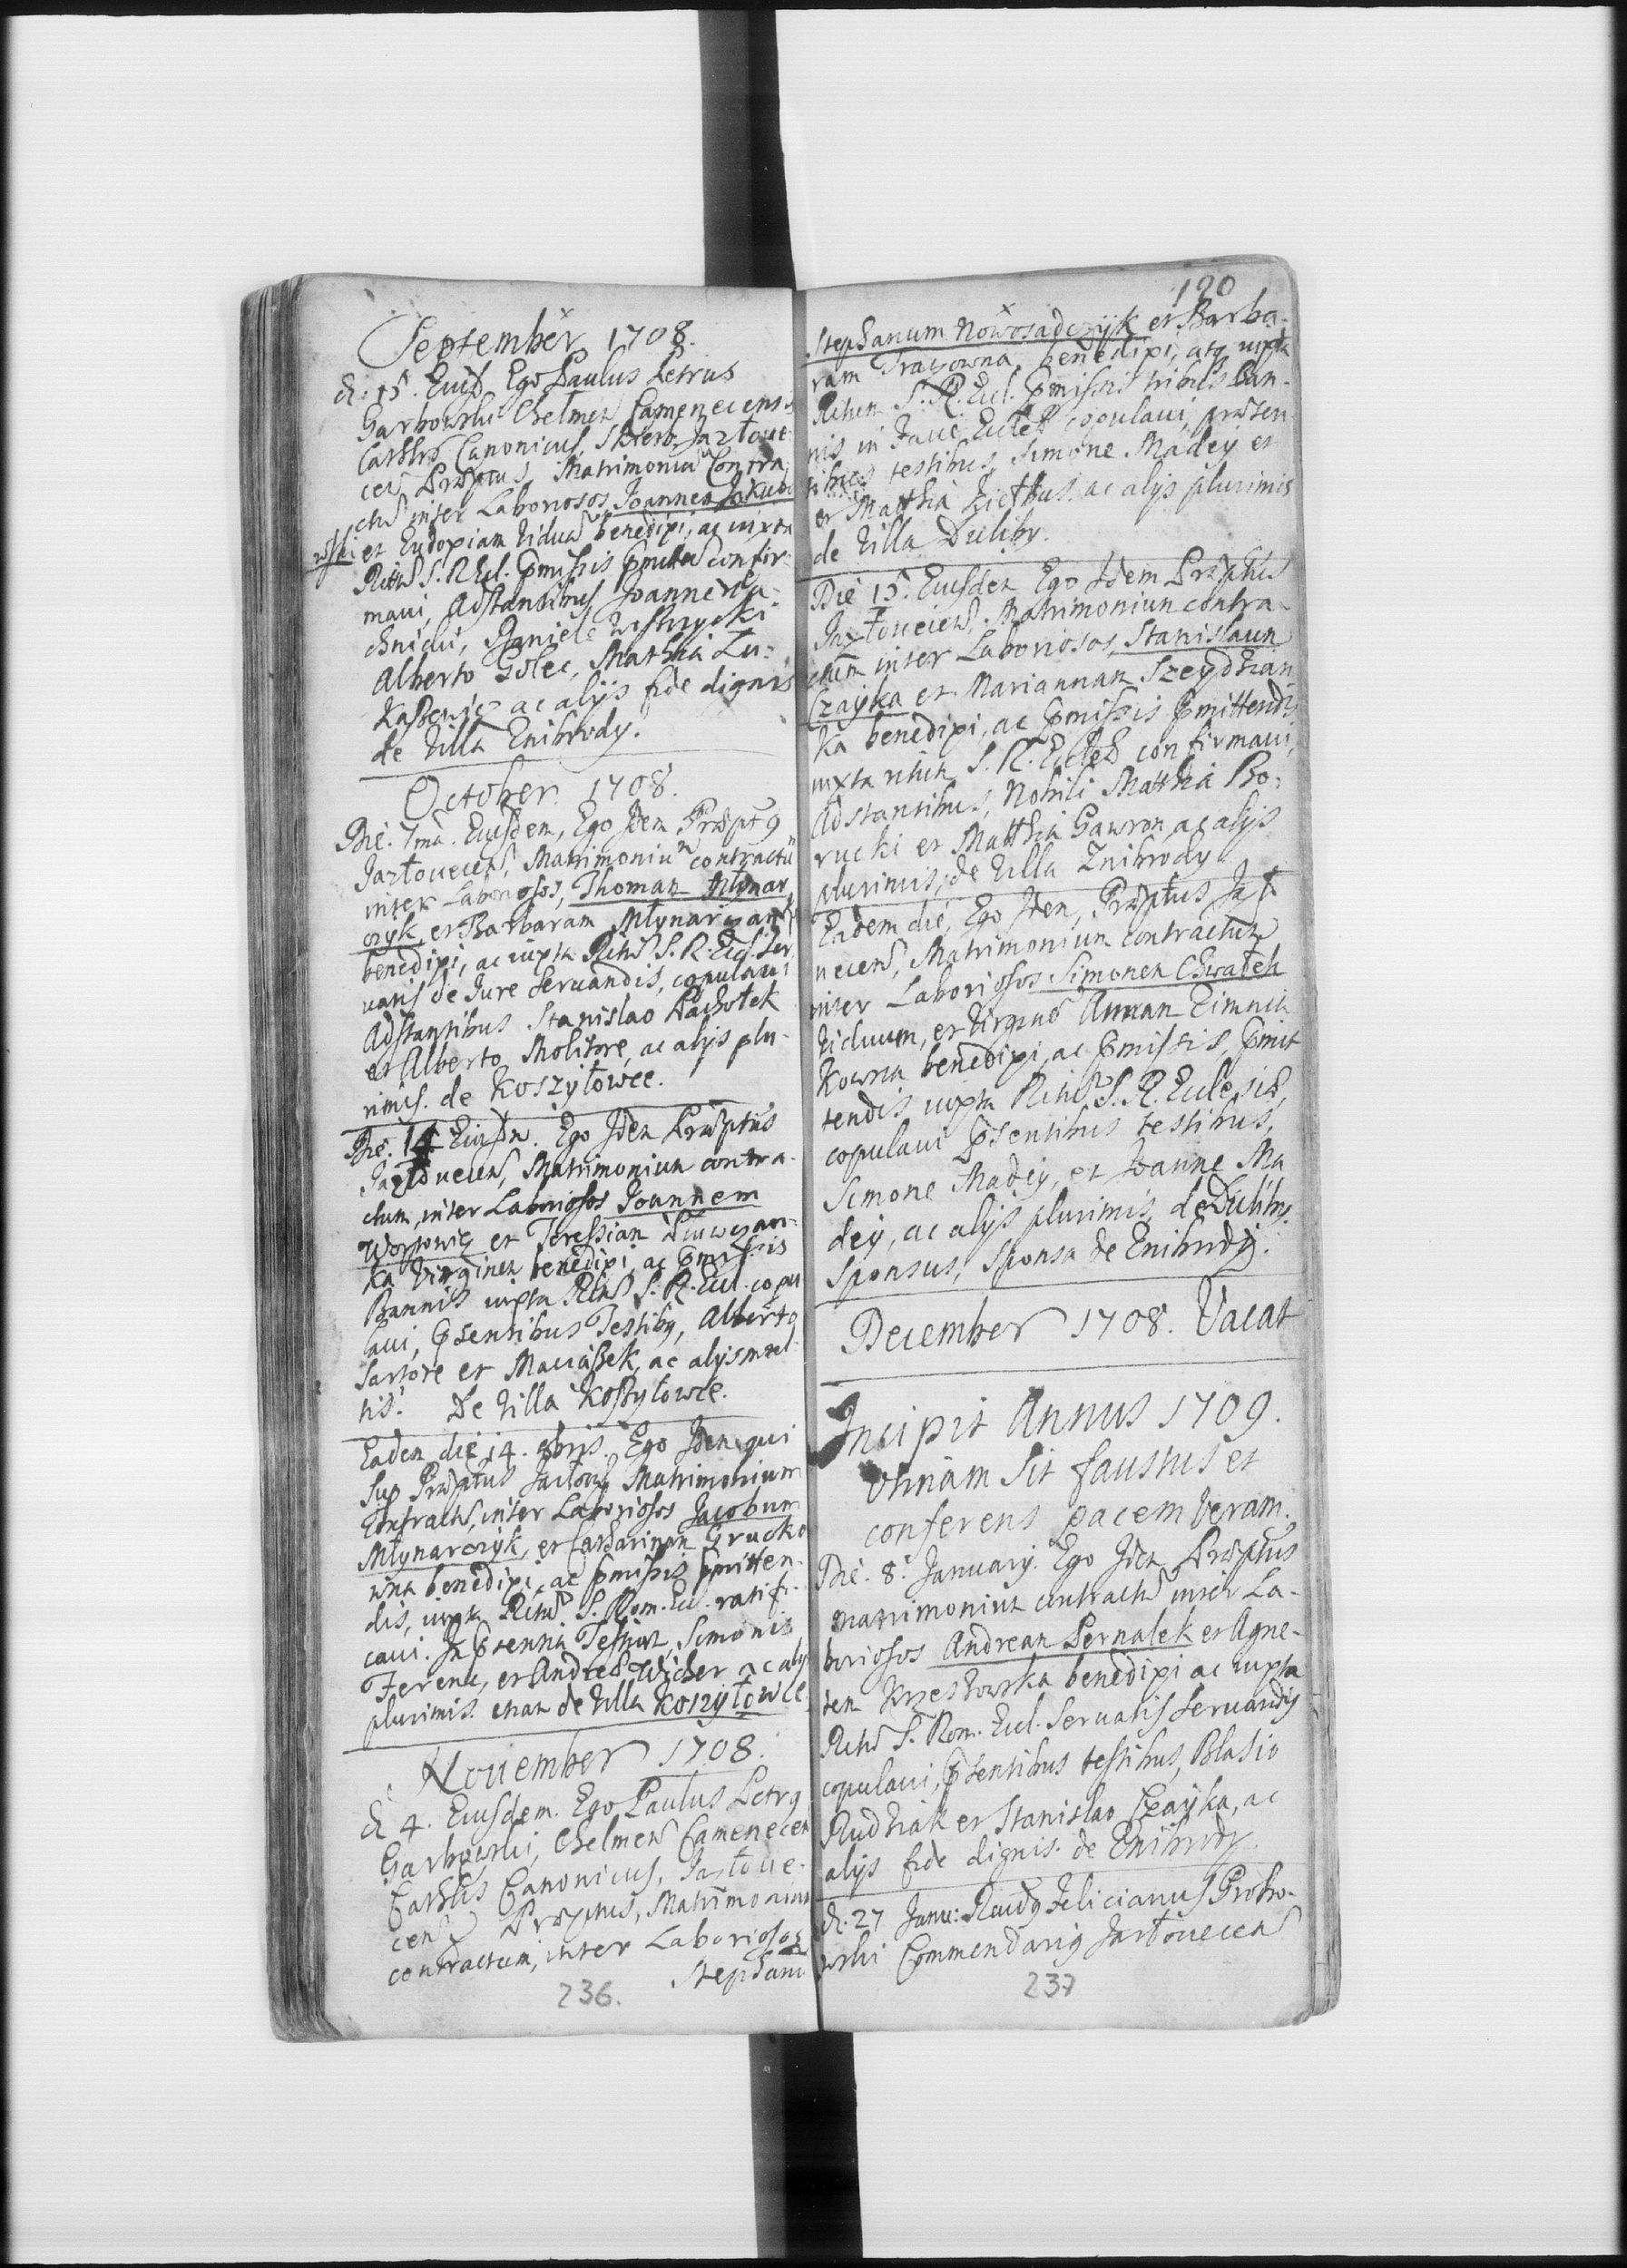 September 1708.
d. 15. Eiusd. Ego Paulus Petrus
Garbowski Chelmen. Camenecensis
Cathlis Canonicus, Jazłoue-
cen. Præptus, Matrimoniu Contra-
ctu inter Laboriosos Joannem Jakubo
wski et Eudoxiam Viduā benedixi, ac iuxta
Ritū S. R. Ecl. pmissis confir-
maui, Adstantibus, Joanne
Daniele
Alberto Golec, Mathia Lu-
kasewic ac alijs fide dignis
de Villa Znibrody.
October. 1708.
Die. 7ma. Eiusdem, Ego Idem Præpt9
Jazłouecen. Matrimoniū contractū
inter Laboriosos, Thoman Młynar
czyk, et Barbaram Młynarczank
benedixi, ac iuxta Ritū S. R. Ecl. Ser
uatis de Iure seruandis, copulaui
Adstantibus Stanislao Pachołek
et Alberto Molitore, ac alijs plu-
rimis. de Koszyłowce.
Die. 14 Eiusdn. Ego Iden Præptus
Jazłouecen, Matrimoniun contra-
ctum, inter Laboriosos Joannem
Woytowic et Teressian
ka Virginen benedixi, ac pmissis
Bannis iuxta Ritū S. R. Ecl. copu
laui, psentibus Testibus, Alberto
Sartore et Maciassek, ac alijs mul-
tis. De Villa Kossyłowce.
Eaden die 14. 8bris. Ego Iden qui
Sup Præptus Matrimonium
Contractū, inter Laboriosos Jacobum
Młynarczyk, et Catharinan Grucko
wna benedixi, ac pmissis pmitten-
dis, iuxta Ritū S. Rom. Ecl. ratifi-
caui. In psentia Testiun, Simonis
Ferenc, et Andreæ Wicher ac alijs
plurimis. etian de Villa Koszyłowce
Nouember 1708.
d 4. Eiusdem. Ego Paulus Petr9
Garbowski, Chelmen Camenecen
Cathlis Canonicus, Jazłoue-
cen Præptus, Matrimonium
contractum, inter Laboriosos
Stephanu
236.
120
Stephanum Nowosadczyk et Barba-
ram benedixi, atq iuxta
Ritun S. R. Ecl. pmissis tribus Ban-
nis in facie Ecclesiæ copulaui, præsen-
tibus testibus, Simone Madey et
et Matthia ac alijs plurimis
de Villa Duliby.
Die 15. Eiusden Ego Idem Præptus
Jazłouecen, Matrimoniun contra-
ctum inter Laboriosos, Stanislaun
Czayka et Mariannan Szeydzian
ka benedixi, ac pmissis pmittendis
iuxta ritun S. R. Ecclesiæ confirmaui,
Adstantibus, Nobili Matthia Bo-
rucki et Matthia Gawron ac alijs
plurimis, de Villa Znibrody
Eadem die, Ego Iden, Præptus Jazł
uecen, Matrimoniun contractun
inter Laboriosos Simonen Chwałek
Viduum, et Virginē Annan Zimnic
kowna benedixi, ac pmissis, pmit
tendis iuxta Ritū S. R. Eclesiæ,
copulaui psentibus testibus,
Simone Madey, et Joanne Ma
dey, ac alijs plurimis, de Duliby.
Sponsus, Sponsa de Znibrody.
December 1708. Vacat
Incipit Annus 1709.
Vtinam Sit faustus et
conferens pacem Veram.
Die. 8. January. Ego Iden Præptus
Matrimoniun contractū inter La-
boriosos Andrean Pernalek et Agne-
ten Krzeskowska benedixi ac iuxta
Ritū S. Rom. Ecl. Seruatis seruandis
copulaui, psentibus testibus, Blasio
Rudziak et Stanislao Czayka, ac
alijs fide dignis. de Znibrody.
d. 27 Janu: Felicianus Grocho-
wski Commendari9 Jazłouecen
237